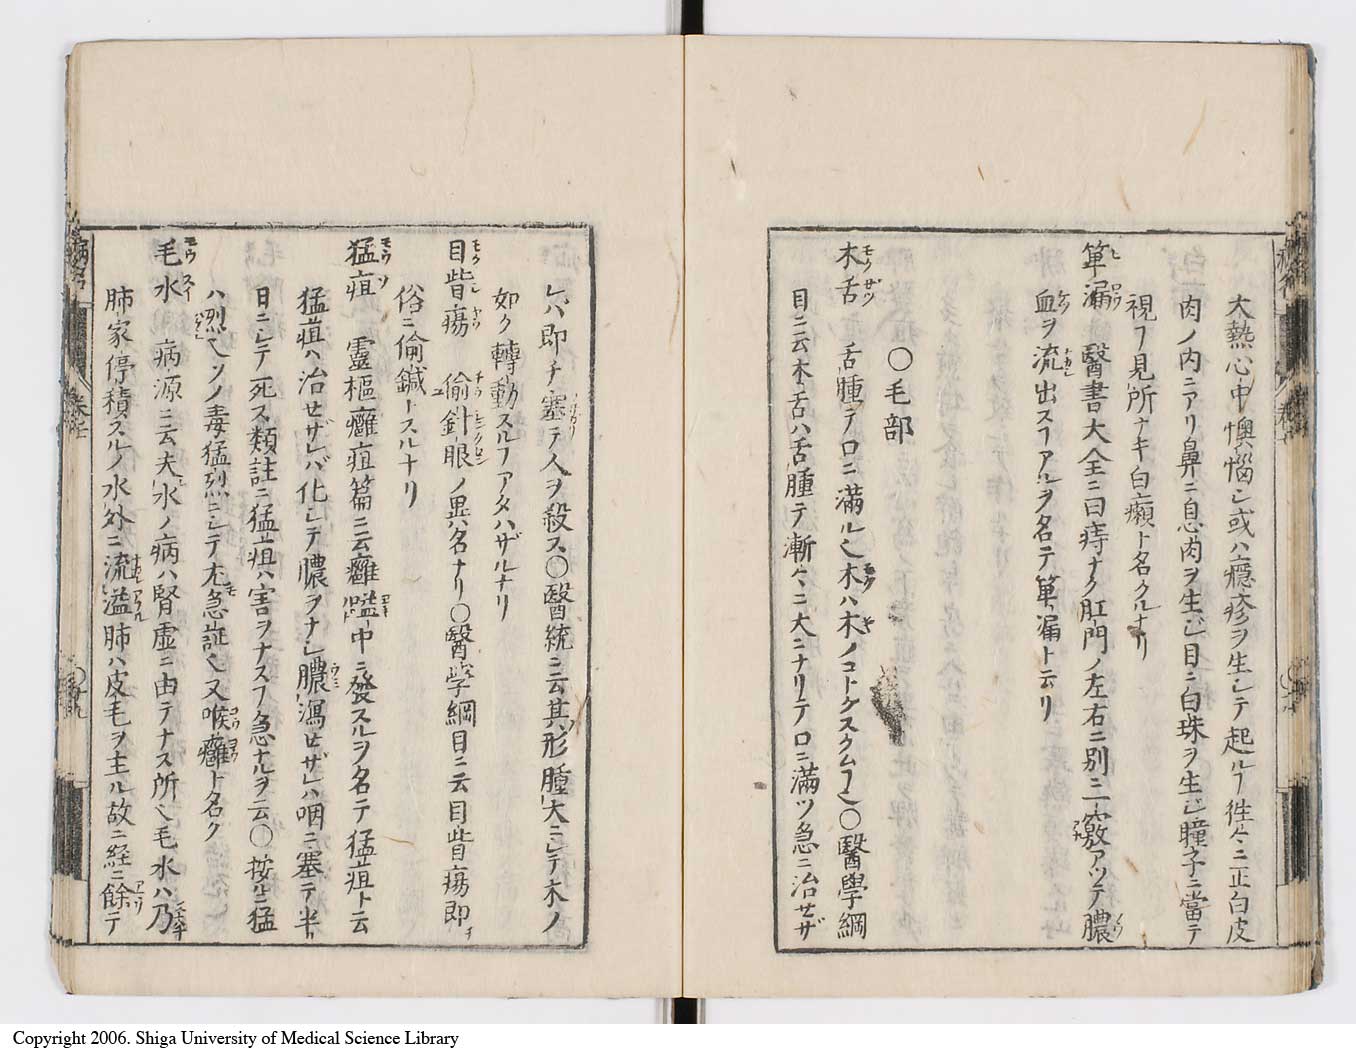 大熱心中懊惱シ或ハ癮疹ヲ生シテ起ルヿ徃々ニ正白皮
肉ノ内ニアリ鼻ニ息肉ヲ生ジ目ニ白珠ヲ生ジ瞳子ニ當テ
視ヿ見所ナキ白癩ト名クルナリ
箄漏 醫書大全ニ曰痔ナク肛門ノ左右ニ別ニ一竅アツテ膿
血ヲ流出スヿアルヲ名テ箄漏ト云リ
〇毛部
木舌 舌腫テ口ニ満ル也木ハ木ノコトクスクムヿ也〇醫學綱
目ニ云木舌ハ舌腫テ漸々ニ大ニナリテ口ニ満ツ急ニ治セザ
レバ即チ塞テ人ヲ殺ス〇醫統ニ云其形腫大ニシテ木ノ
如ク轉動スルヿアタハザルナリ
目眥瘍 偷針眼ノ異名ナリ〇醫学綱目ニ云目眥瘍即
俗ニ偷鍼トスルナリ
猛疽 靈樞癰疽篇ニ云癰嗌中ニ發スルヲ名テ猛疽ト云
猛疽ハ治セザレバ化シテ膿ヲナシ膿瀉セザレハ咽ニ塞テ半
日ニシテ死ス類註ニ猛疽ハ害ヲナスヿ急ナルヲ云〇按ニ猛
ハ烈也ソノ毒猛烈ニシテ尤急証也又喉癰ト名ク
毛水 病源ニ云夫水ノ病ハ腎虚ニ由テナス所也毛水ハ乃
肺家停積スルノ水外ニ流溢肺ハ皮毛ヲ主ル故ニ経ニ餘テ
Copyright 2006. Shiga University of Medical Science Library